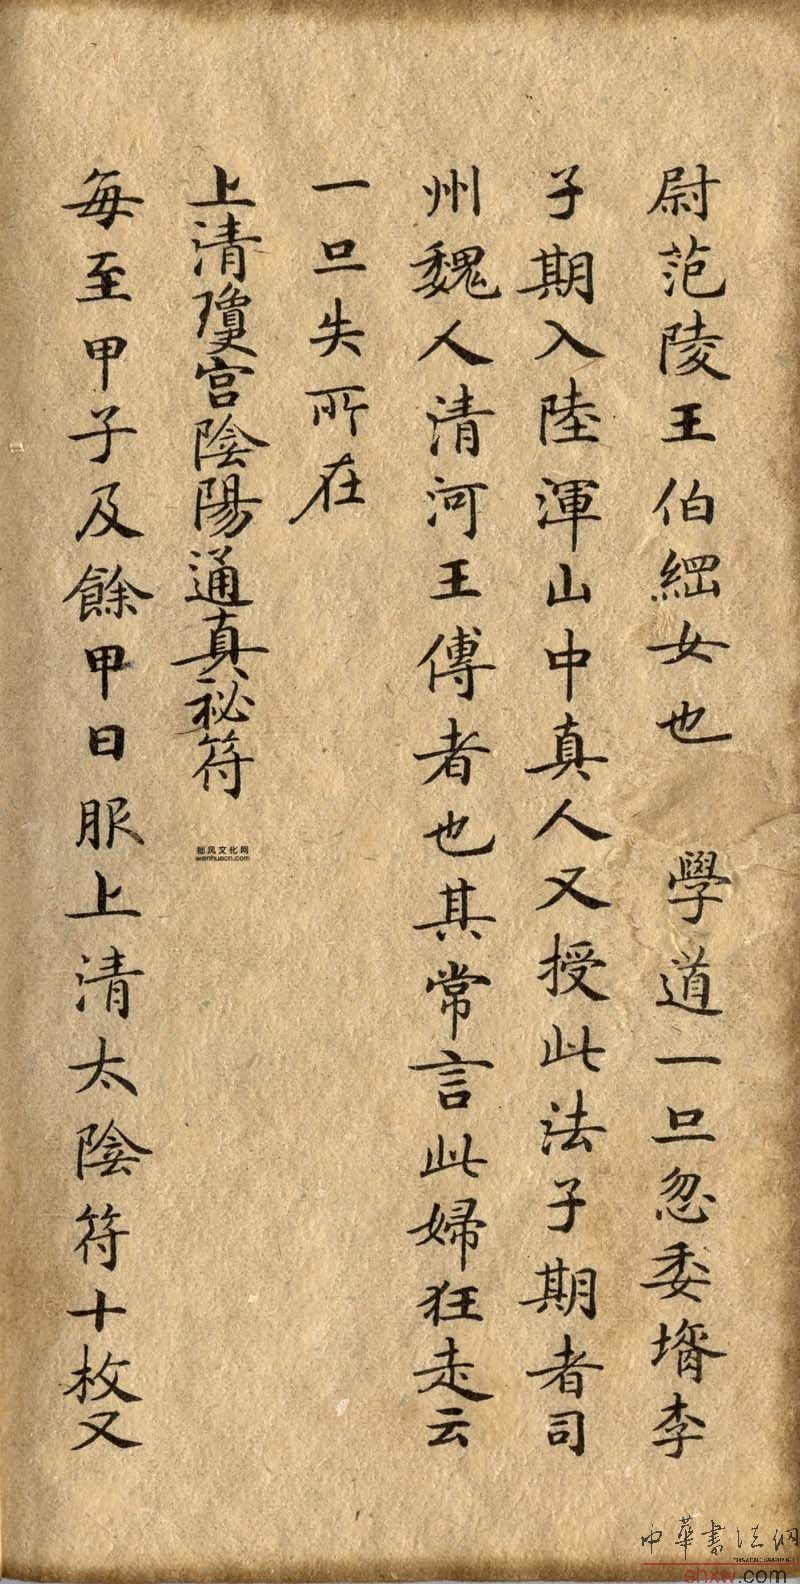 尉范陵王伯綱女也　學道一旦忽委壻李
子期入陸渾山中真人又授此法子期者司
州魏人清河王傅者也其常言此婦狂走云
一旦失所在
上清瓊宮陰陽通真祕符
每至甲子及餘甲日服上清太陰符十枚又
拙风文化网
wenhuacn.com
中華書法網
shxw.com